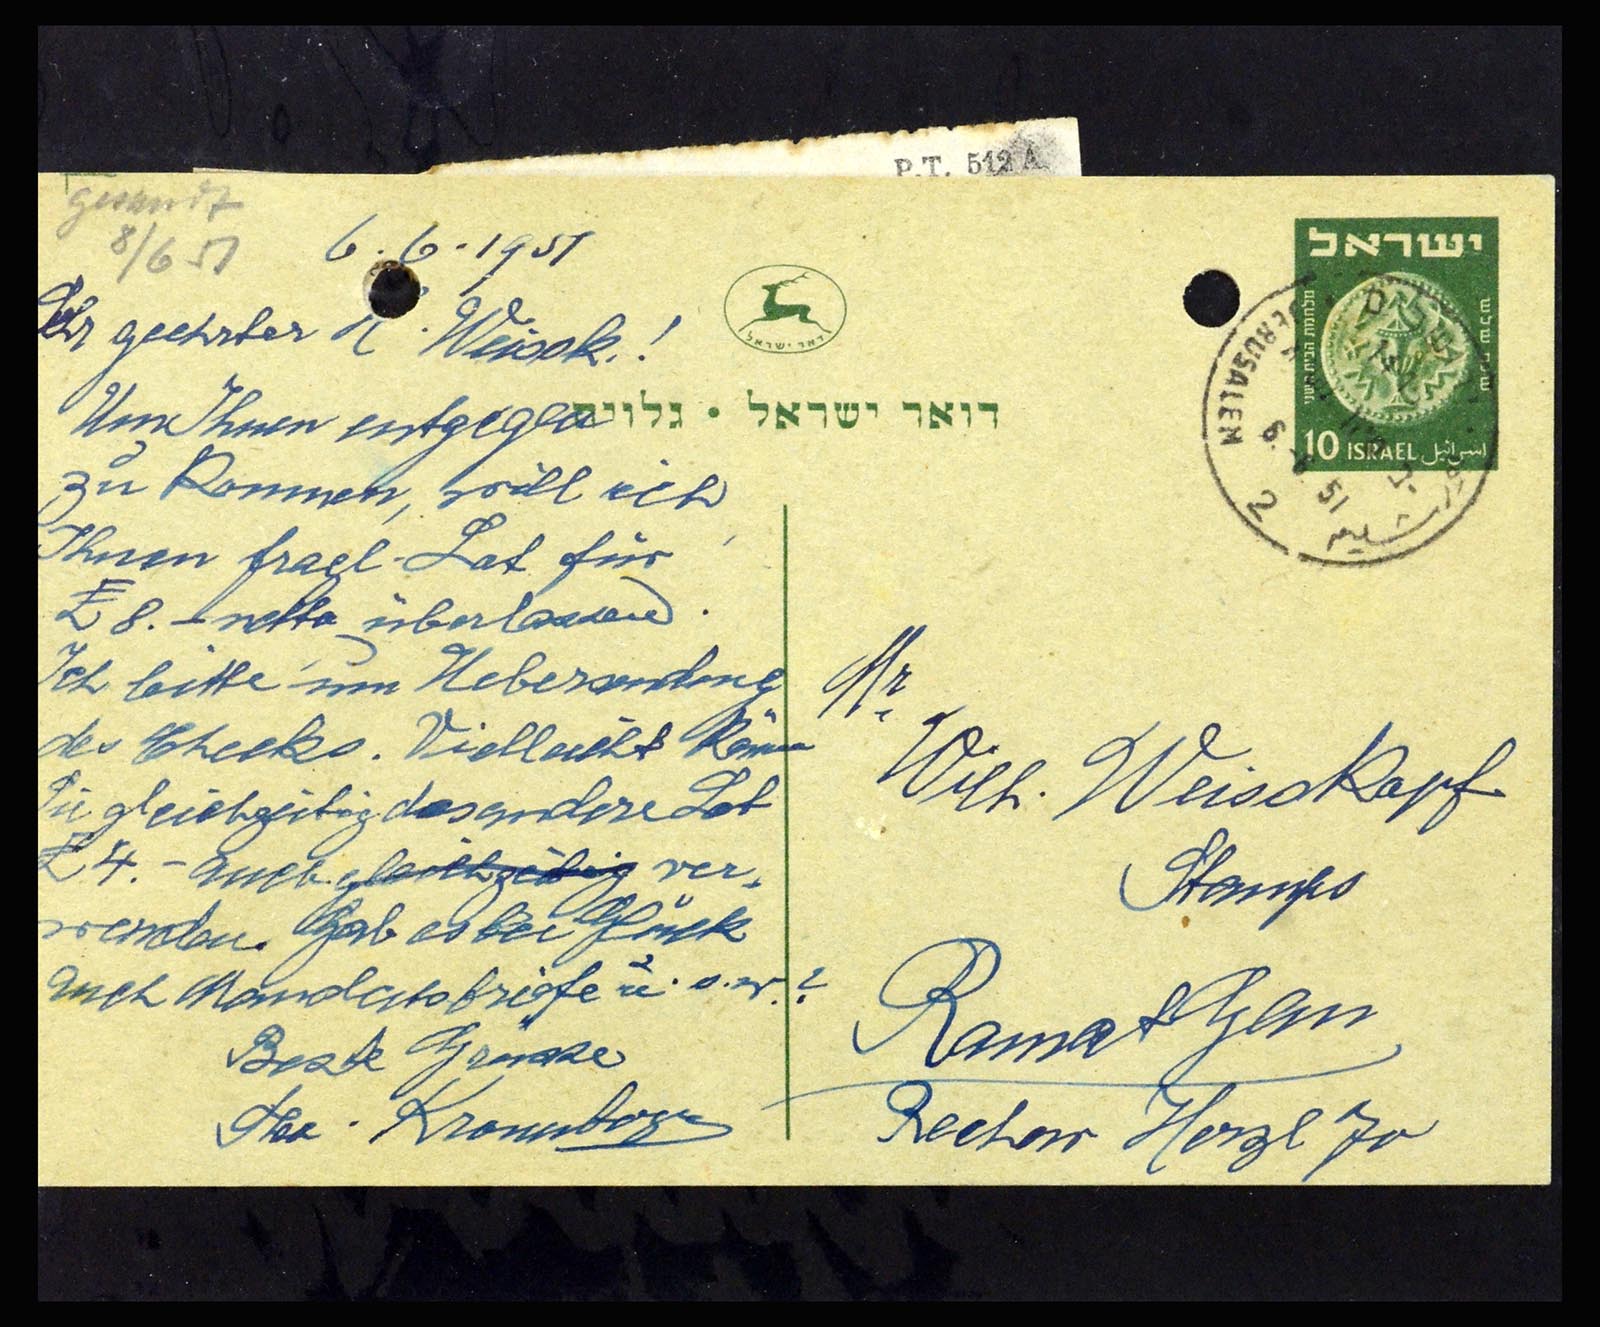 P.T. 512 A
gesandt
8/6 51
6.6.1951
Sehr geehrter H. Weissk.!
Um Ihnen entgegen
zu Kommen, will ich
Ihnen fragl. Lot für
£ 8.- netto überlassen.
Ich bitte um Uebersendung
des Checks. Vielleicht können
Sie gleichzeitig das andere Lot
£ 4.- auch gleichzeitig ver-
wenden. Gab es bei Glück
auch Mandatsbriefe u.s.w.?
Beste Grüsse
דואר ישראל
דואר ישראל • גלויה
ישראל
מלחמת הבית השני
10 ISRAEL اسرائيل
JERUSALEM
6. 51
2
Mr
Wilh. Weisskopf
Stamps
Ramat Gan
Rechow Herzl 70